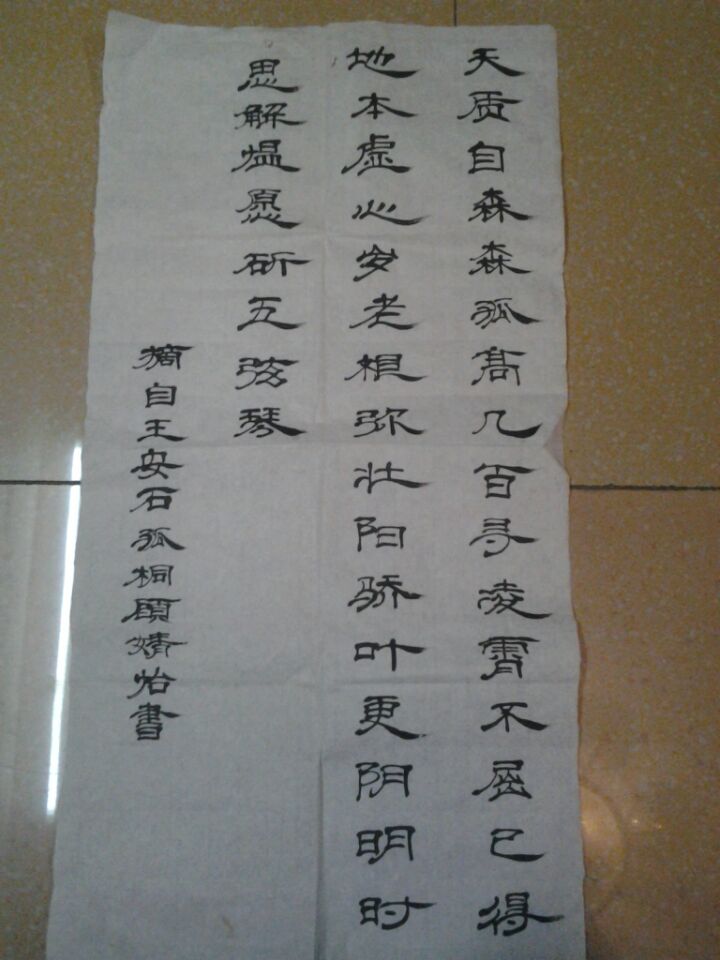 天质自森森孤髙几百寻凌霄不屈己得
地本虚心岁老根弥壮阳骄叶更阴明时
思解愠愿斫五弦琴
摘自王安石孤桐顾婧怡書